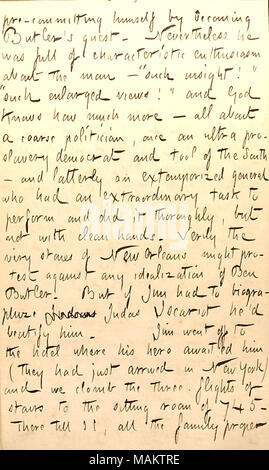 pre-committing himself by becoming
Butler's guest. Nevertheless he
was full of characteristic enthusiasm
about the man — "such insight!"
"such enlarged views!" and God
knows how much more — all about
a coarse politician, once an ultra pro-
slavery democrat and tool of the South
— and latterly an extemporized general
who had an extraordinary task to
perform and did it thoroughly, but
not with clean hands. Verily the
very stones of New Orleans might pro-
test against any idealization of Ben
Butler. But if Jim had to biogra-
phize Judas Iscariot he'd
beatify him. Jim went up to
the hotel where his hero awaited him
(they had just arrived in New York)
and we clomb the three flights of
stairs to the sitting room of 745.
There till 11, all the family proper
alamy
Image ID: MAKTRE
www.alamy.com